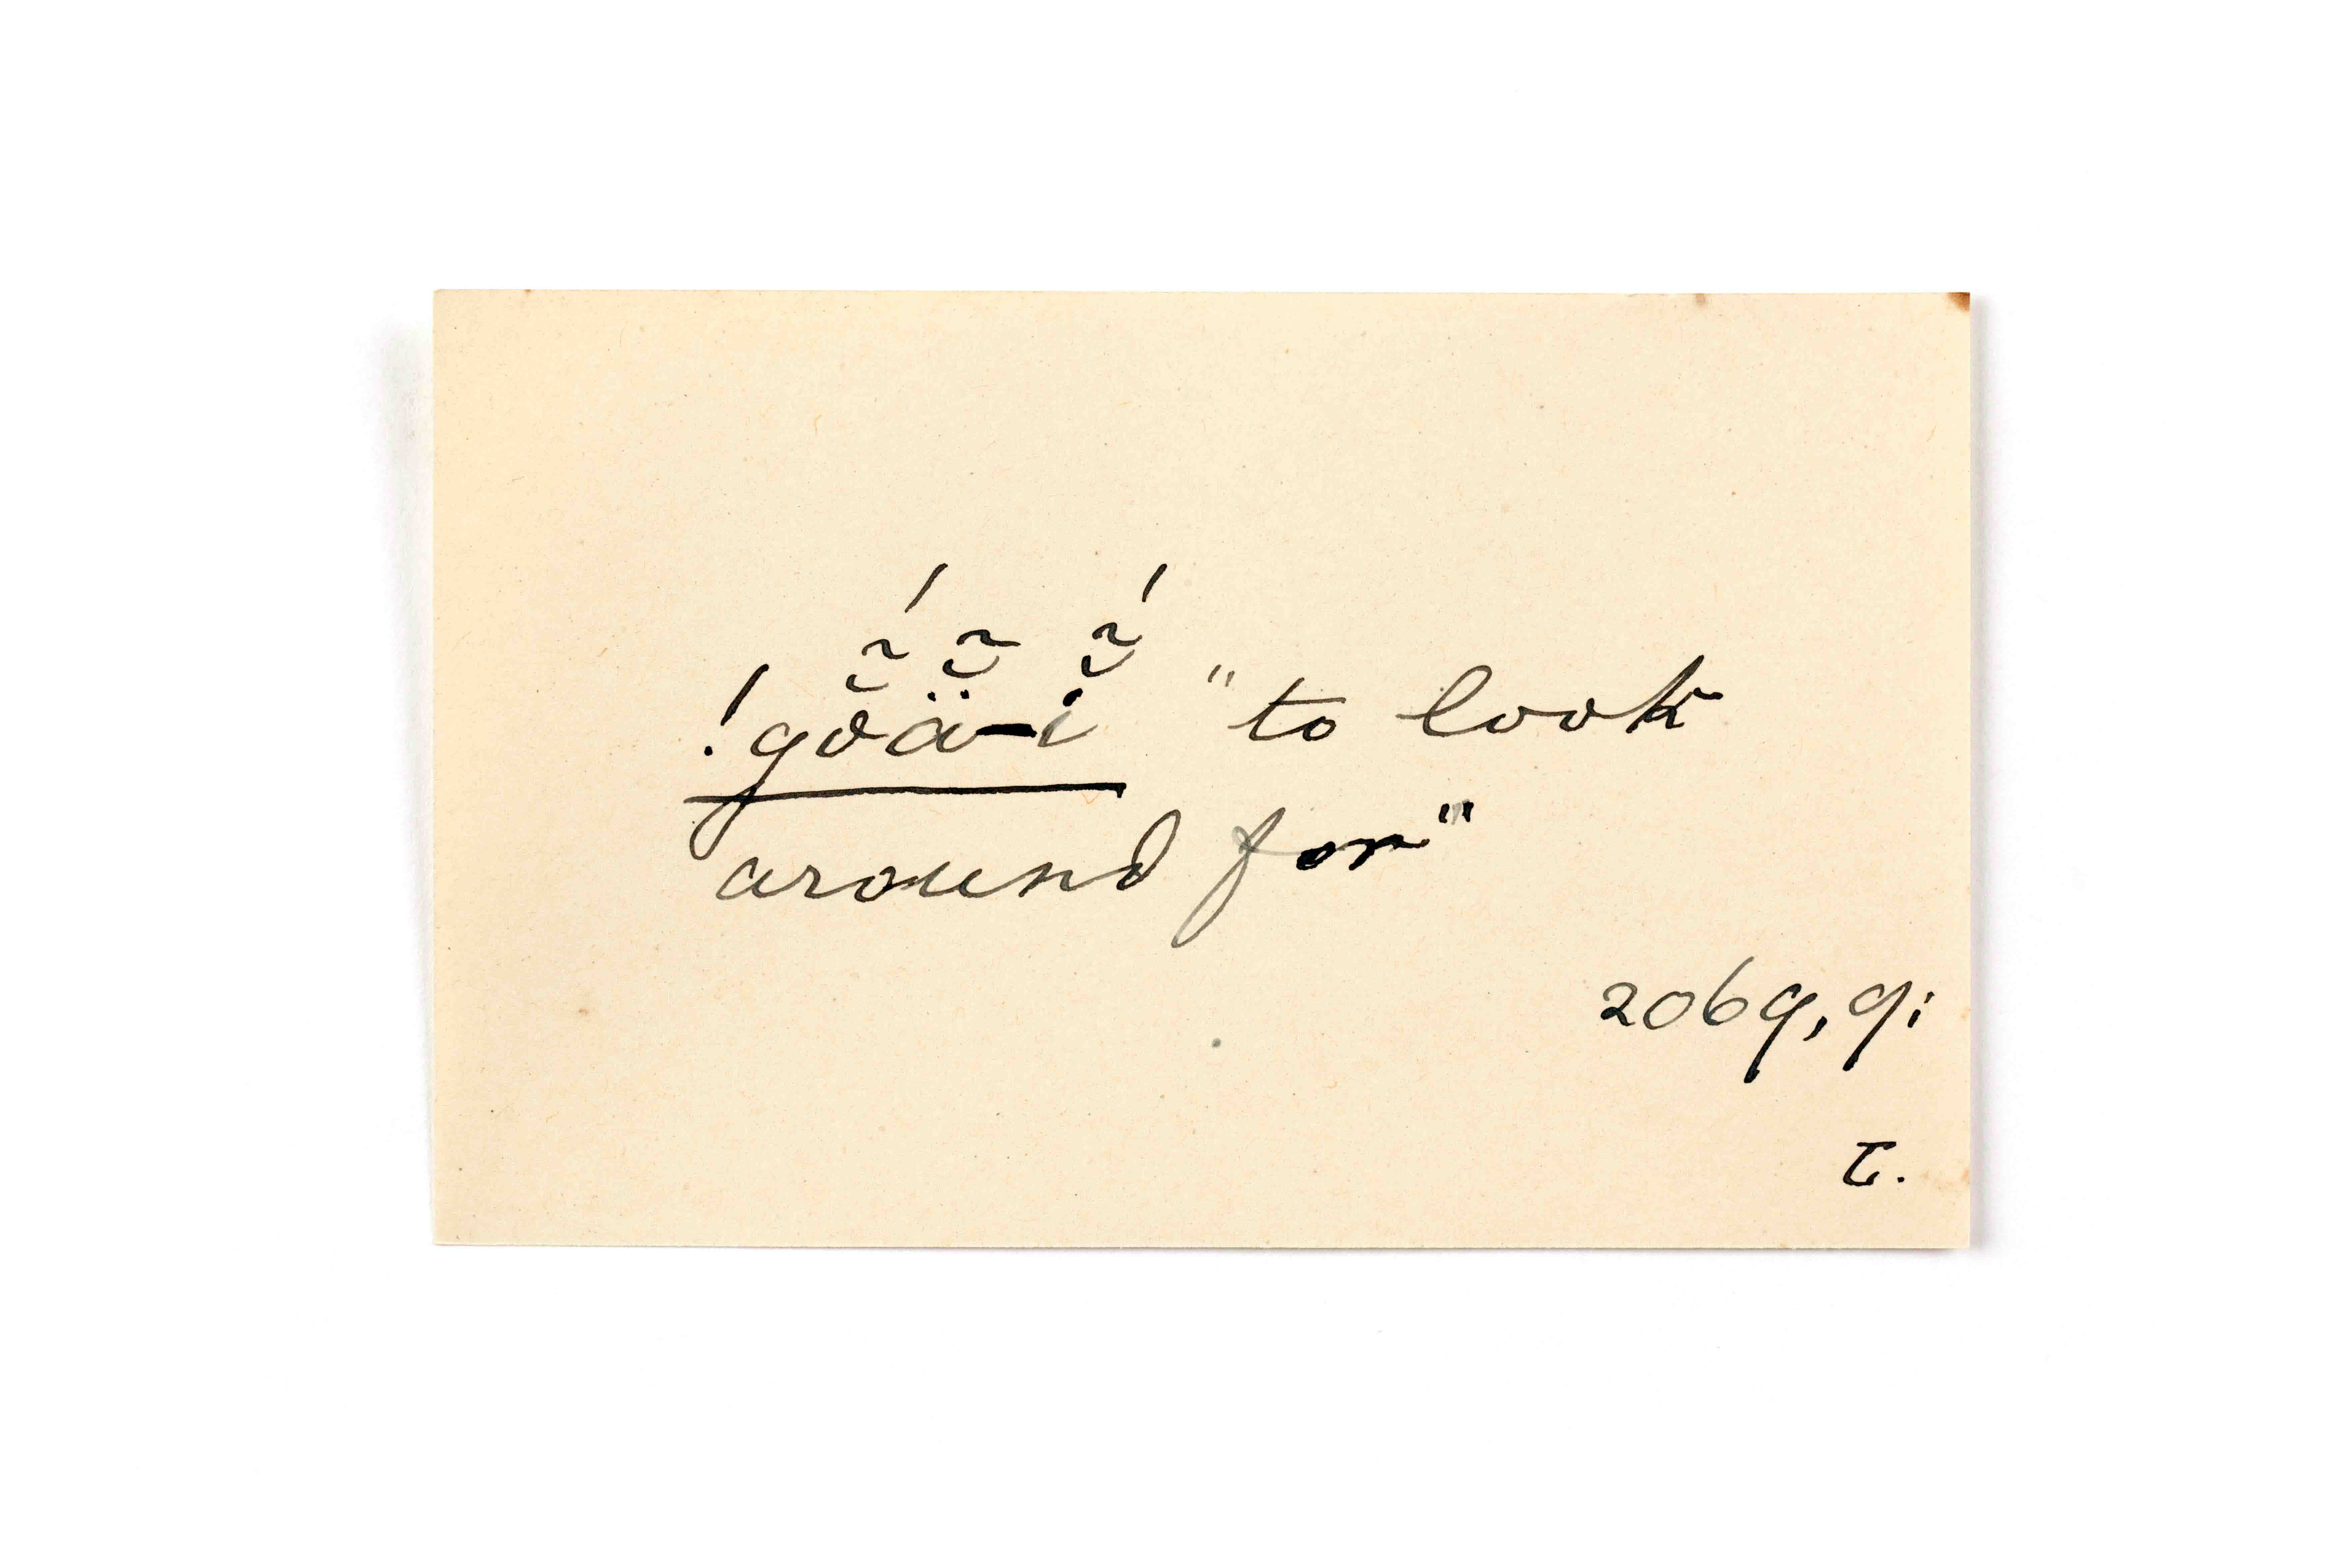 !gŏ̃ä̆̃́-ĭ̃́ "to look
around for"
2069, 9;
T.